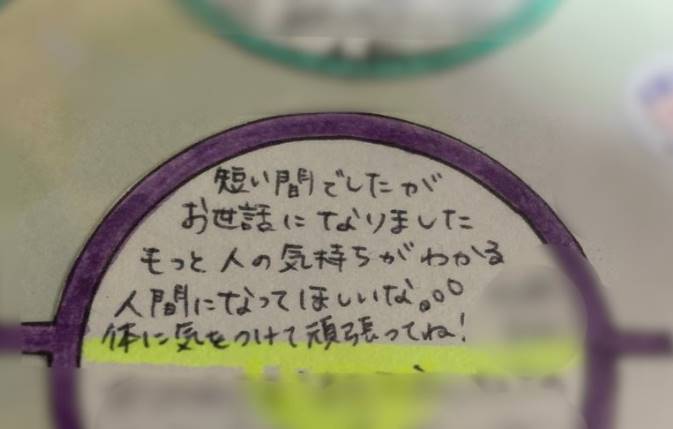 短い間でしたが
お世話になりました
もっと人の気持ちがわかる
人間になってほしいな。oO
体に気をつけて頑張ってね!